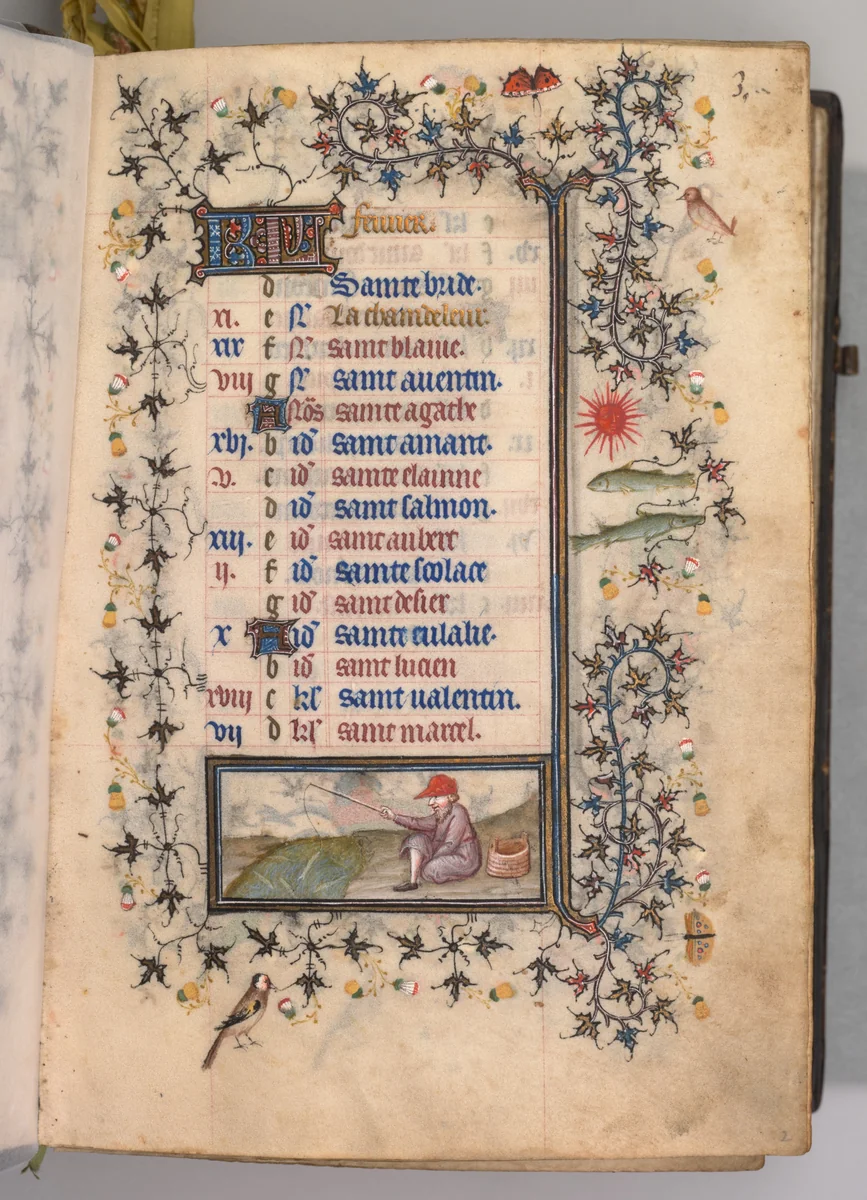 KL feurier.
d Sainte bride.
xi. e N La chandeleur.
xix f N saint blaiue.
viii g N saint auentin.
A Nōs sainte agathe
xvi. b id saint amant.
v. c id sainte elainne
d id saint salmon.
xiii. e id saint aubert
ii. f id sainte scolace
g id saint desier
x A id sainte eulalie.
b id saint lucien
xviii c kl saint ualentin.
vii d kl saint marcel.
2